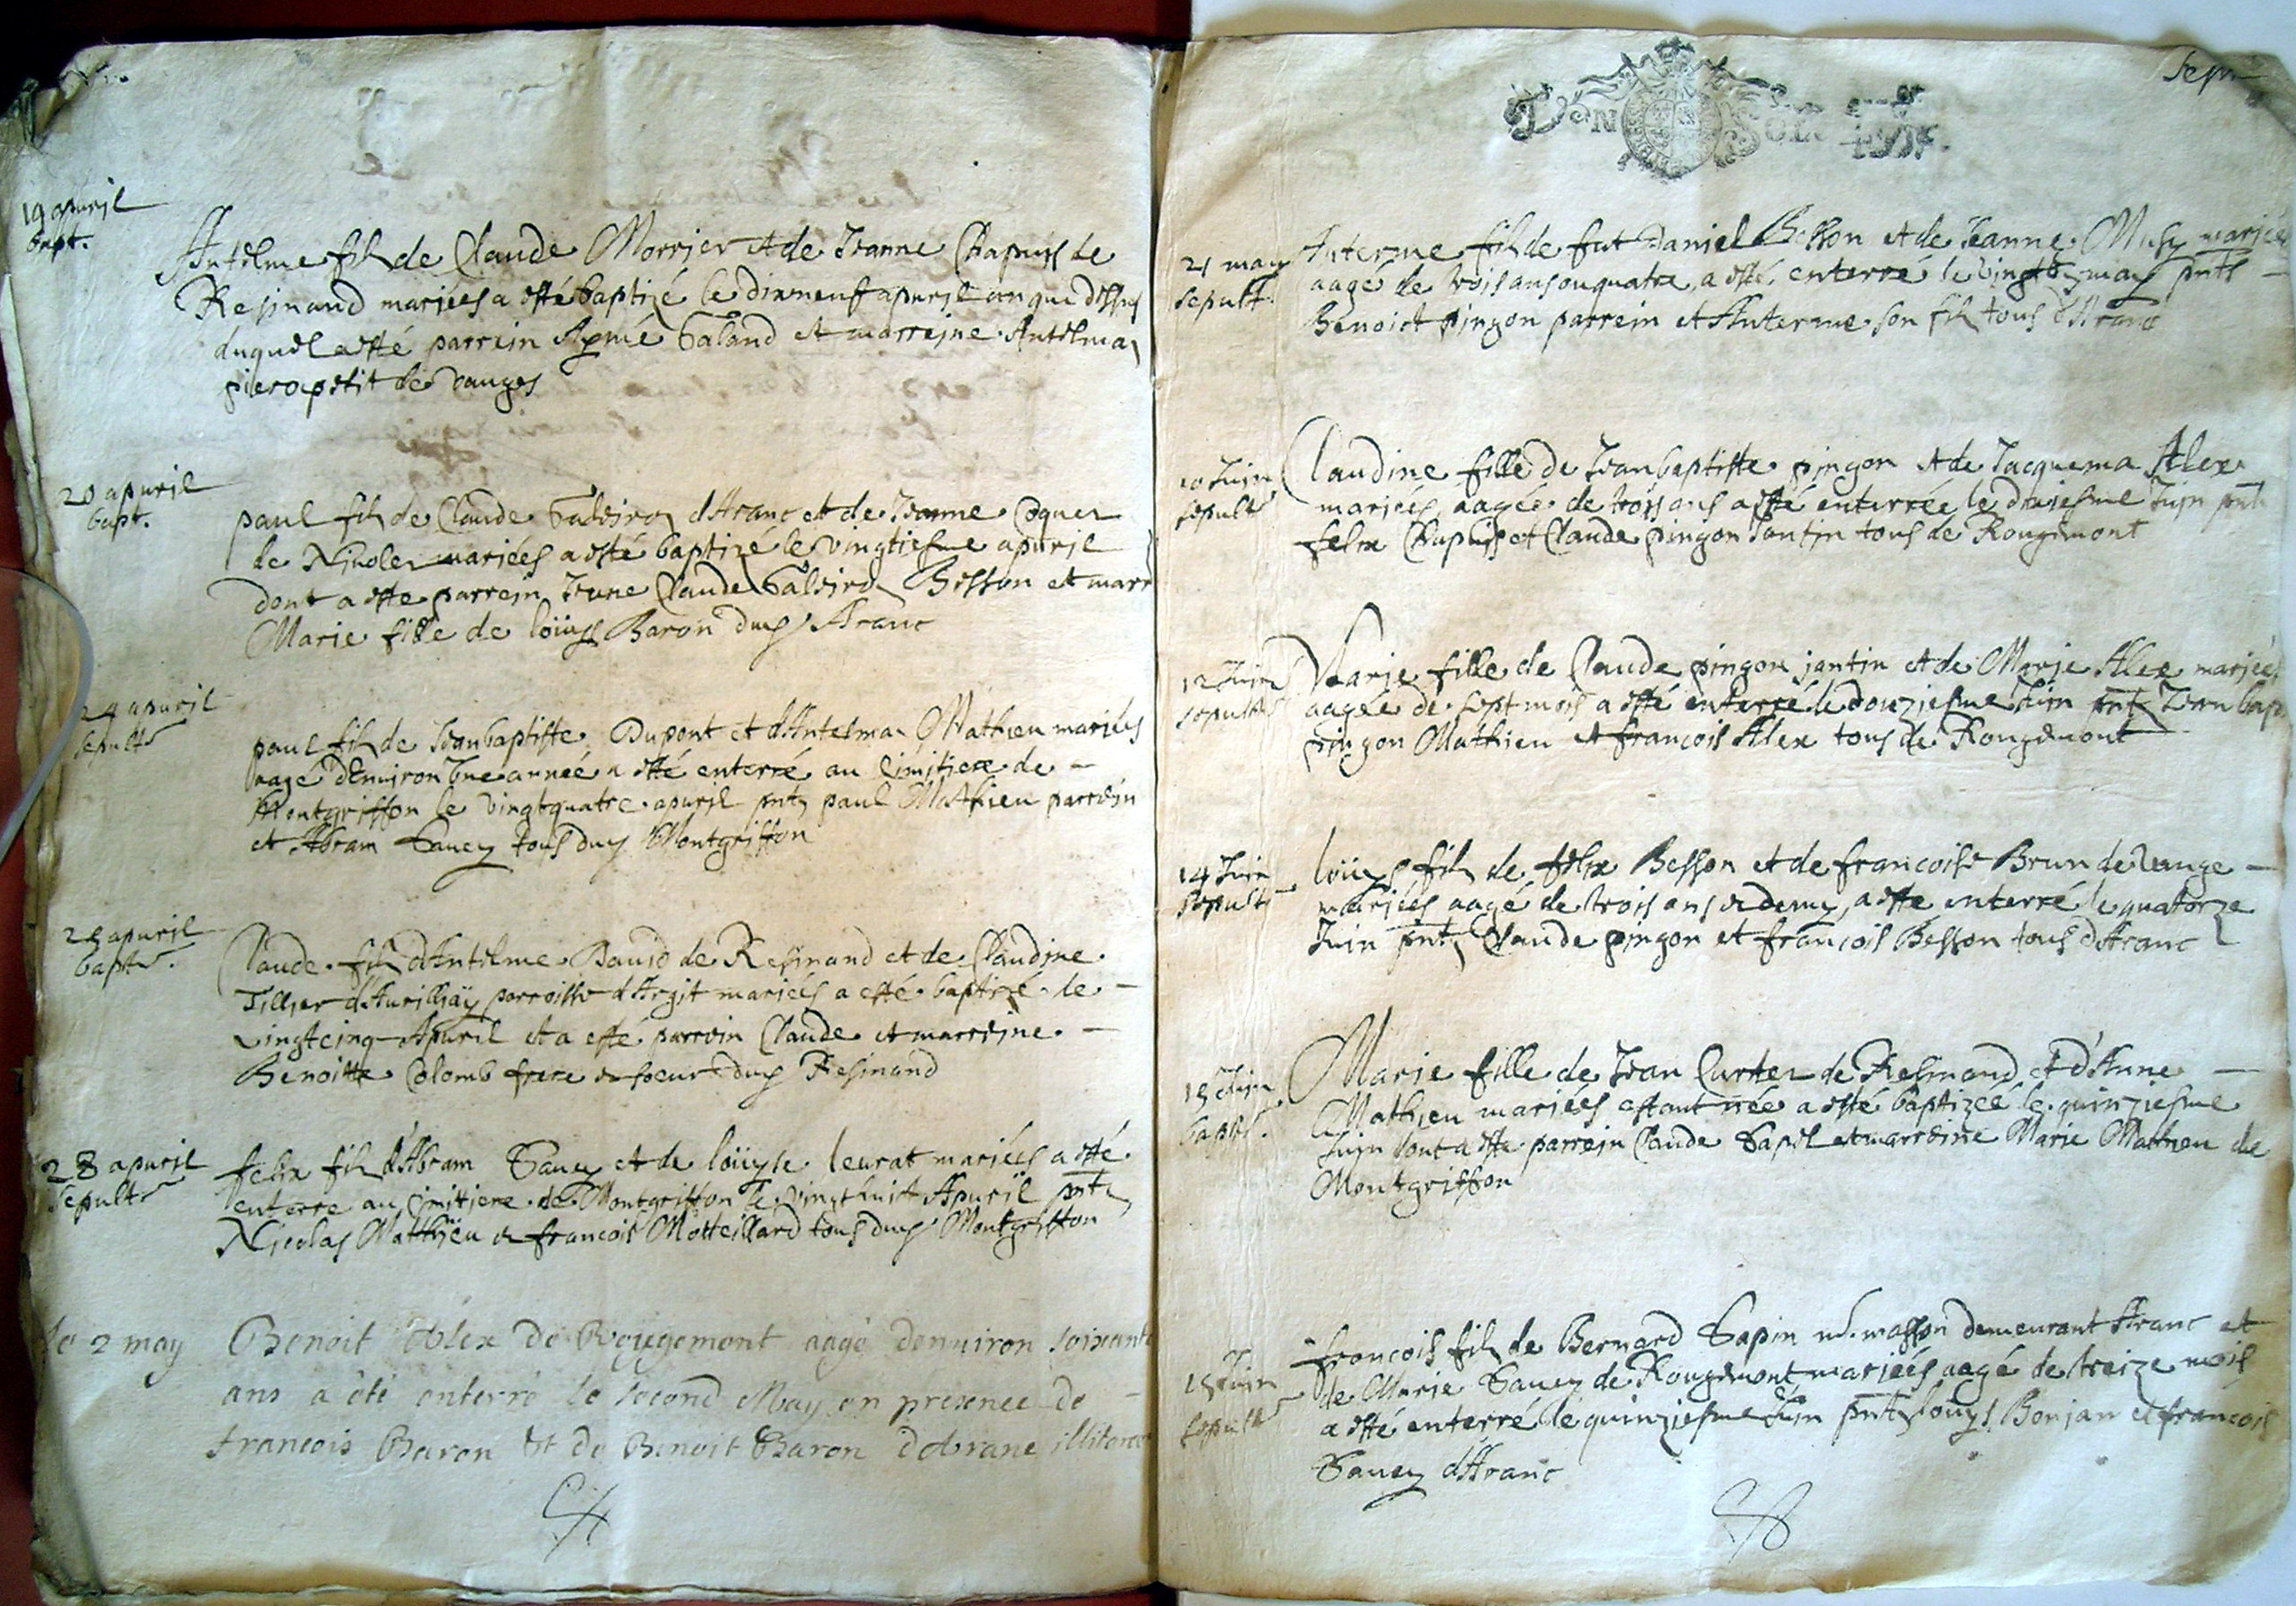 19 apuril
bapt.
Antelme fils de Claude Morrier et de Jeanne Chapuys de
Resinand mariées a esté baptizé le dixneuf apuril an que dessus
duquel a esté parrein Aymé Galand et marreine Antelma
pierapetit de vanges
20 apuril
bapt.
paul fils de Claude d'Aranc et de Jeanne Coquer
de mariées a esté baptizé le vingtiesme apuril
dont a esté parrein Jeune Claude Besson et marr
Marie fille de loüys Baron duz Aranc
24 apuril
sepult
paul fils de Jeanbaptiste Dupont et d'Antelma Mathieu mariées
aagé d'enuiron vne année a esté enterré au Cimitiere de -
Montgriffon le vingtquatre apuril pnts paul Mathieu parrein
et Abram Sauey tous duz Montgriffon
25 apuril
bapt.
Claude fils d'Antelme Dauid de Resinand et de Claudine
Tillier parroisse d'Argit mariées a esté baptizé le -
vingtcinq Apuril et a esté parrein Claude et marreine -
Benoitte Colomb frere et soeur duz Resinand
28 apuril
sepult
felix fils d'Abram Sauey et de loüyse leurat mariées a esté
enterre au Cimitiere de Montgriffon le vingt huit Apuril pnts
Nicolas Matthieu et francois Motteillard tous duz Montgriffon
le 2 may
Benoit Alex de Rougemont aagé denuiron soixante
ans a été enterré le second May en presence de -
francois Baron et de Benoit Baron d'Aranc
21 may
sepult.
Anterme fils de fut Daniel Besson et de Jeanne mariées
aagé de trois ans ou quatre a esté enterré le may pnts -
Benoict pingon parrein et Anterme son fils tous d'Aranc
10 Juin
sepult
Claudine fille de Jeanbaptiste pingon et de Jacquema Alex
mariées aagée de trois ans a esté enterrée le dixiesme Juin pnts
felix Chapuis et Claude pingon Jantin tous de Rougemont
12 Juin
sepult
Marie fille de Claude pingon jantin et de Marie Alex mariées
aagée de sept mois a esté enterré le douziesme Juin pnts Jean bap
pingon Mathieu et francois Alex tous de Rougemont
14 Juin
sepult
loüys fils de felix Besson et de francoise Brun de vange -
mariées aagé de trois ans et demy, a esté enterré le quatorze
Juin pnts Claude pingon et francois Besson tous d'Aranc
15 Juin
bapt.
Marie fille de Jean Curtet de Resinand et d'Anne -
Mathieu mariées estant née a esté baptizée le quinziesme
Juin dont a esté parrein Claude Sapil et marreine Marie Mathieu de
Montgriffon
15 Juin
sepult
francois fils de Bernard Sapin masson demeurant Aranc et
de Marie Sauey de Rougemont mariées aagé de treize mois
a esté enterré le quinziesme Juin pnts loüys Bonjan et francois
Sauey d'Aranc